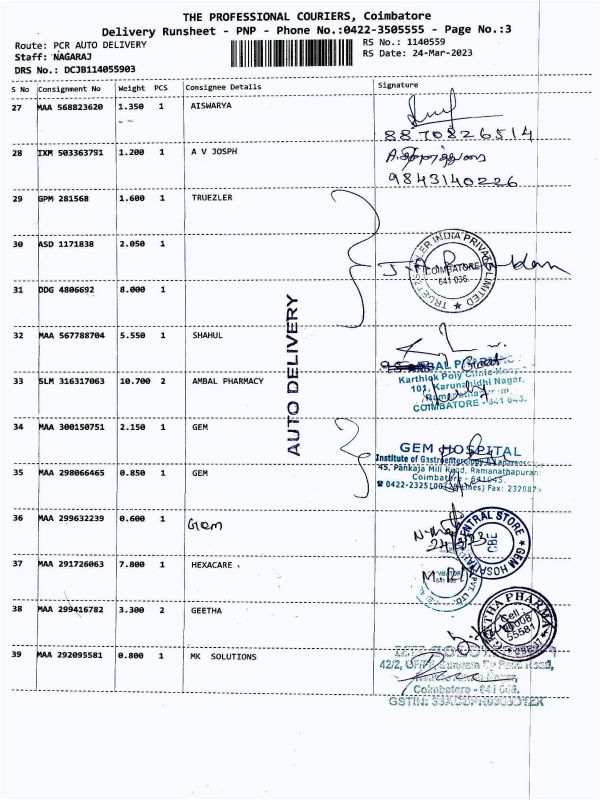 THE PROFESSIONAL COURIERS, Coimbatore
Delivery Runsheet - PNP - Phone No.:0422-3505555 - Page No.:3
Route: PCR AUTO DELIVERY
RS No.: 1140559
Staff: NAGARAJ
RS Date: 24-Mar-2023
DRS No.: DCJB114055903
S No Consignment No Weight PCS Consignee Details Signature
27 MAA 568823620 1.350 1 AISWARYA
8870826514
28 IXM 503363791 1.200 1 A V JOSPH
9843140226
29 GPM 281568 1.600 1 TRUEZLER
30 ASD 1171838 2.050 1
COIMBATORE
641 036.
31 DDG 4806692 8.000 1
AUTO DELIVERY
32 MAA 567788704 5.550 1 SHAHUL
33 SLM 316317063 10.700 2 AMBAL PHARMACY
Karthick Poly Clinic
101, Karunanidhi Nagar,
COIMBATORE - 641 045.
34 MAA 300150751 2.150 1 GEM
GEM HOSPITAL
Institute of Gastroenterology
35 MAA 298066465 0.850 1 GEM
45, Pankaja Mill Road, Ramanathapuram
Coimbatore - 641045.
0422-2325100 Fax:
36 MAA 299632239 0.600 1 Gem
CENTRAL STORE
CBE
GEM HOSPITAL
37 MAA 291726063 7.800 1 HEXACARE
38 MAA 299416782 3.300 2 GEETHA
GEETHA PHARMA
Cell:
55581
39 MAA 292095581 0.800 1 MK SOLUTIONS
Coimbatore - 641 045.